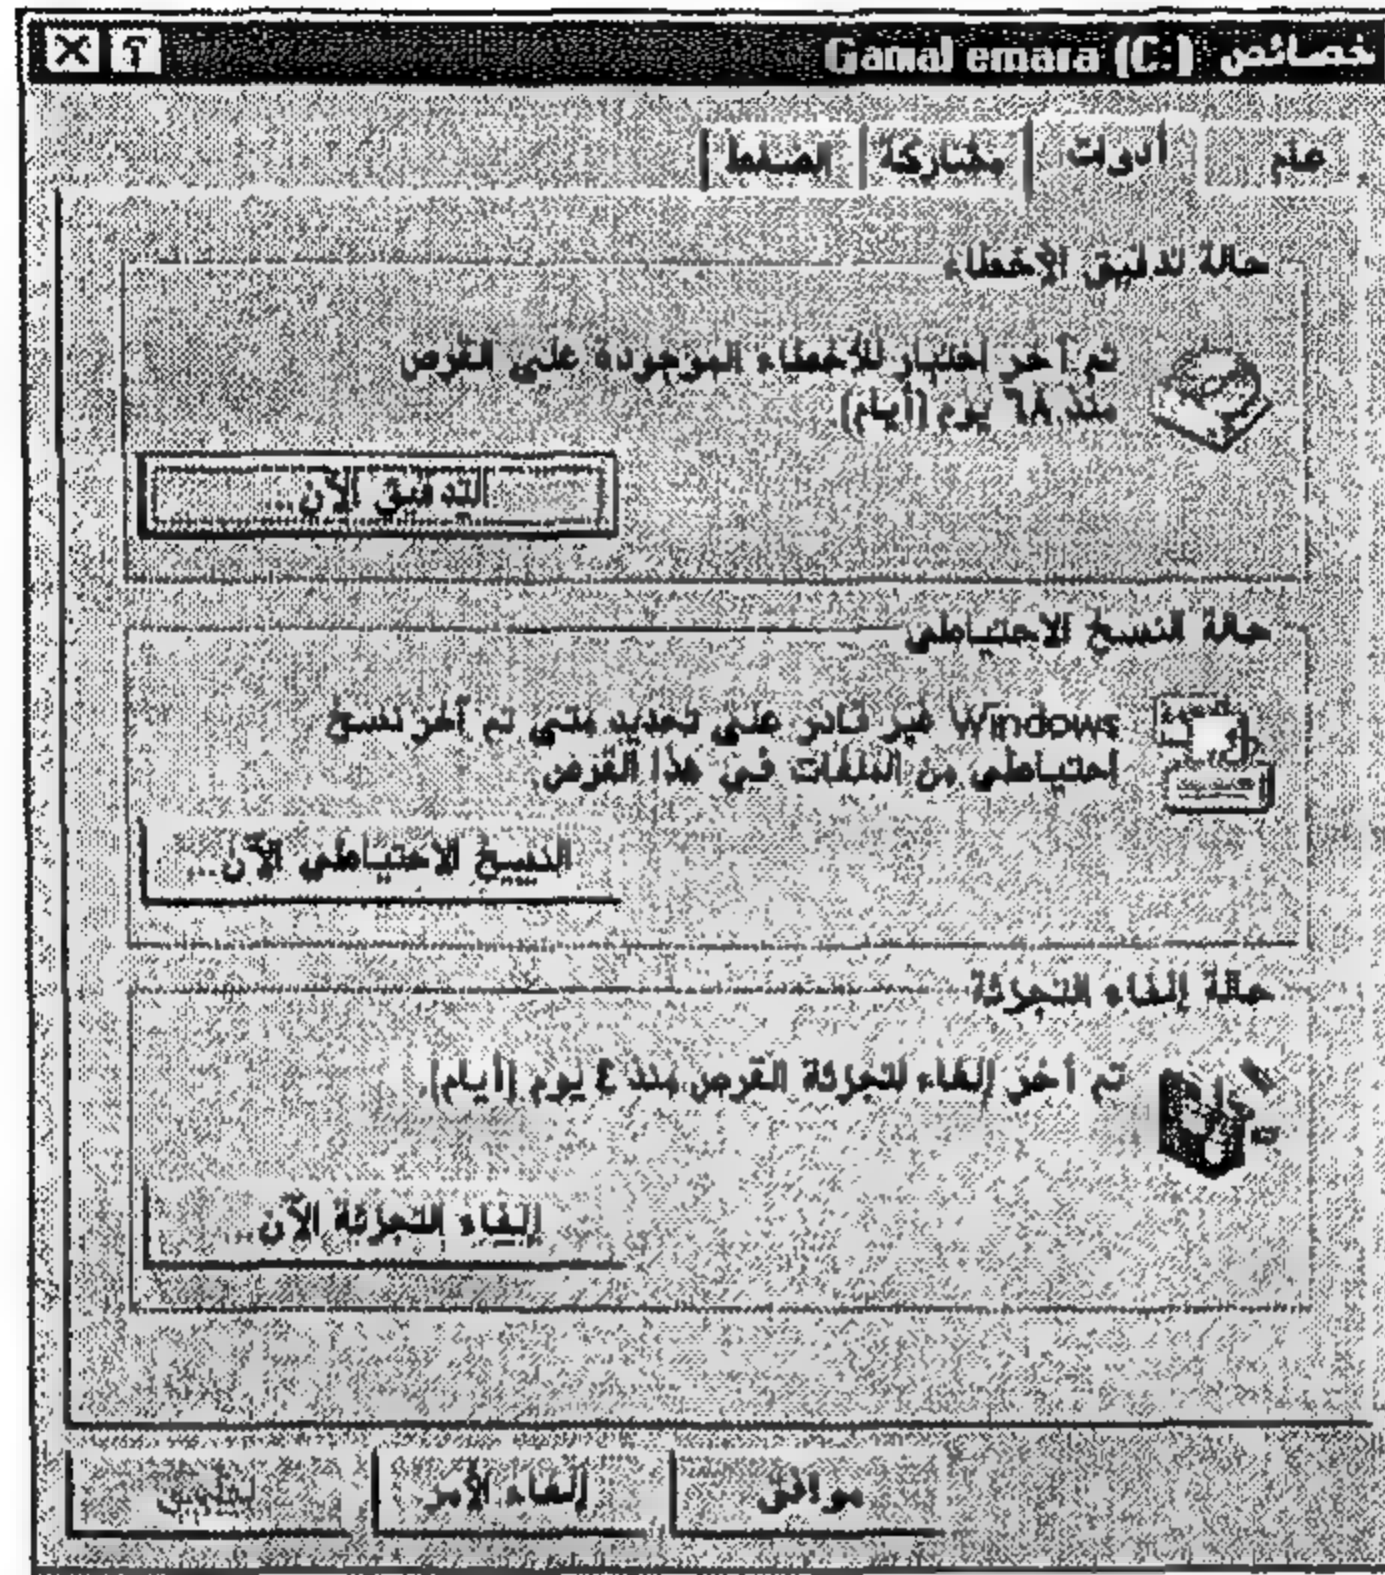 خصائص Gamal emara (C:)
عام
أدوات
مشاركة
الضغط
حالة تدقيق الأخطاء
تم آخر اختبار للأخطاء الموجودة على القرص
منذ ٦٨ يوم (أيام).
التدقيق الآن...
حالة النسخ الاحتياطي
Windows غير قادر على تحديد متى تم آخر نسخ
احتياطي من الملفات في هذا القرص.
النسخ الاحتياطي الآن...
حالة إلغاء التجزئة
تم آخر إلغاء لتجزئة القرص منذ ٤ يوم (أيام).
إلغاء التجزئة الآن...
موافق
إلغاء الأمر
تطبيق